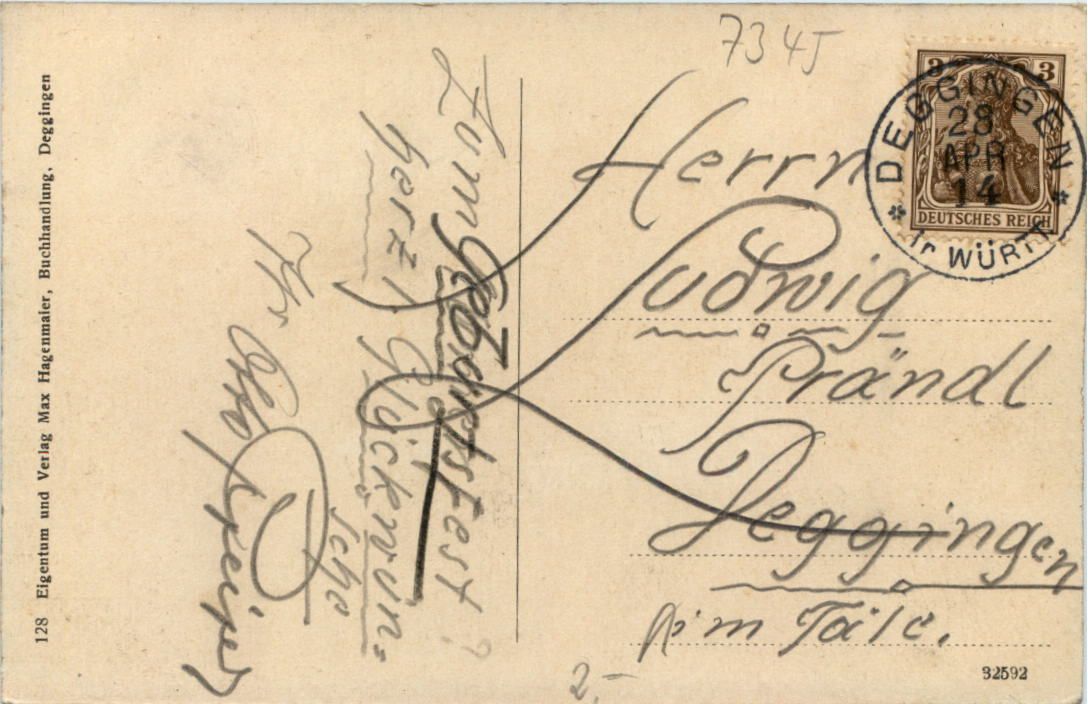 7345
3 3
DEUTSCHES REICH
DEGGINGEN
28
APR
14
in WÜRTT
Herrn
Ludwig
Prändl
Deggingen
im Täle.
Zum Geburtsfest!
herzl. Glückwün-
sche
128 Eigentum und Verlag Max Hagenmaier, Buchhandlung, Deggingen
2.-
32592